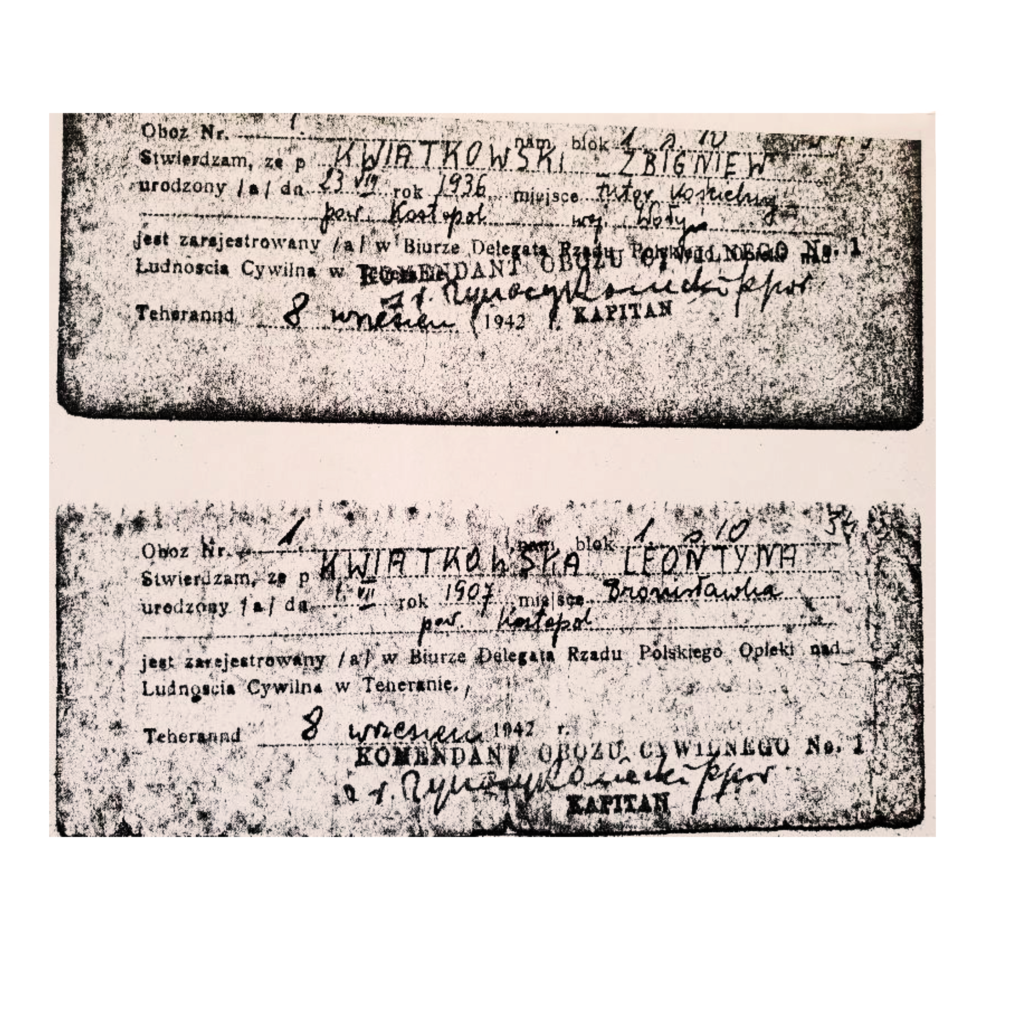 Oboz Nr. 1. nam. blok 1. s. 10
Stwierdzam, ze p KWIATKOWSKI ZBIGNIEW
urodzony /a/ dn 23 VII rok 1936 miejsce
pow. Kostopol woj. Wołyń
jest zarajestrowany /a/ w Biurze Delegata Rzadu
Ludnoscia Cywilna w
KOMENDANT OBOZU CYWILNEGO No. 1
Teherannd 8 wrzesien 1942 r.
KAPITAN
Oboz Nr. 1 nam. blok 1. s 10
Stwierdzam, ze p KWIATKOWSKA LEONTYNA
urodzony /a/ dn 1. VII rok 1907 miejsce Bronisławka
pow. Kostopol
jest zarejestrowany /a/ w Biurze Delegata Rzadu Polskiego Opieki nad
Ludnoscia Cywilna w Teheranie.
Teherannd 8 wrzesien 1942 r.
KOMENDANT OBOZU CYWILNEGO No. 1
KAPITAN